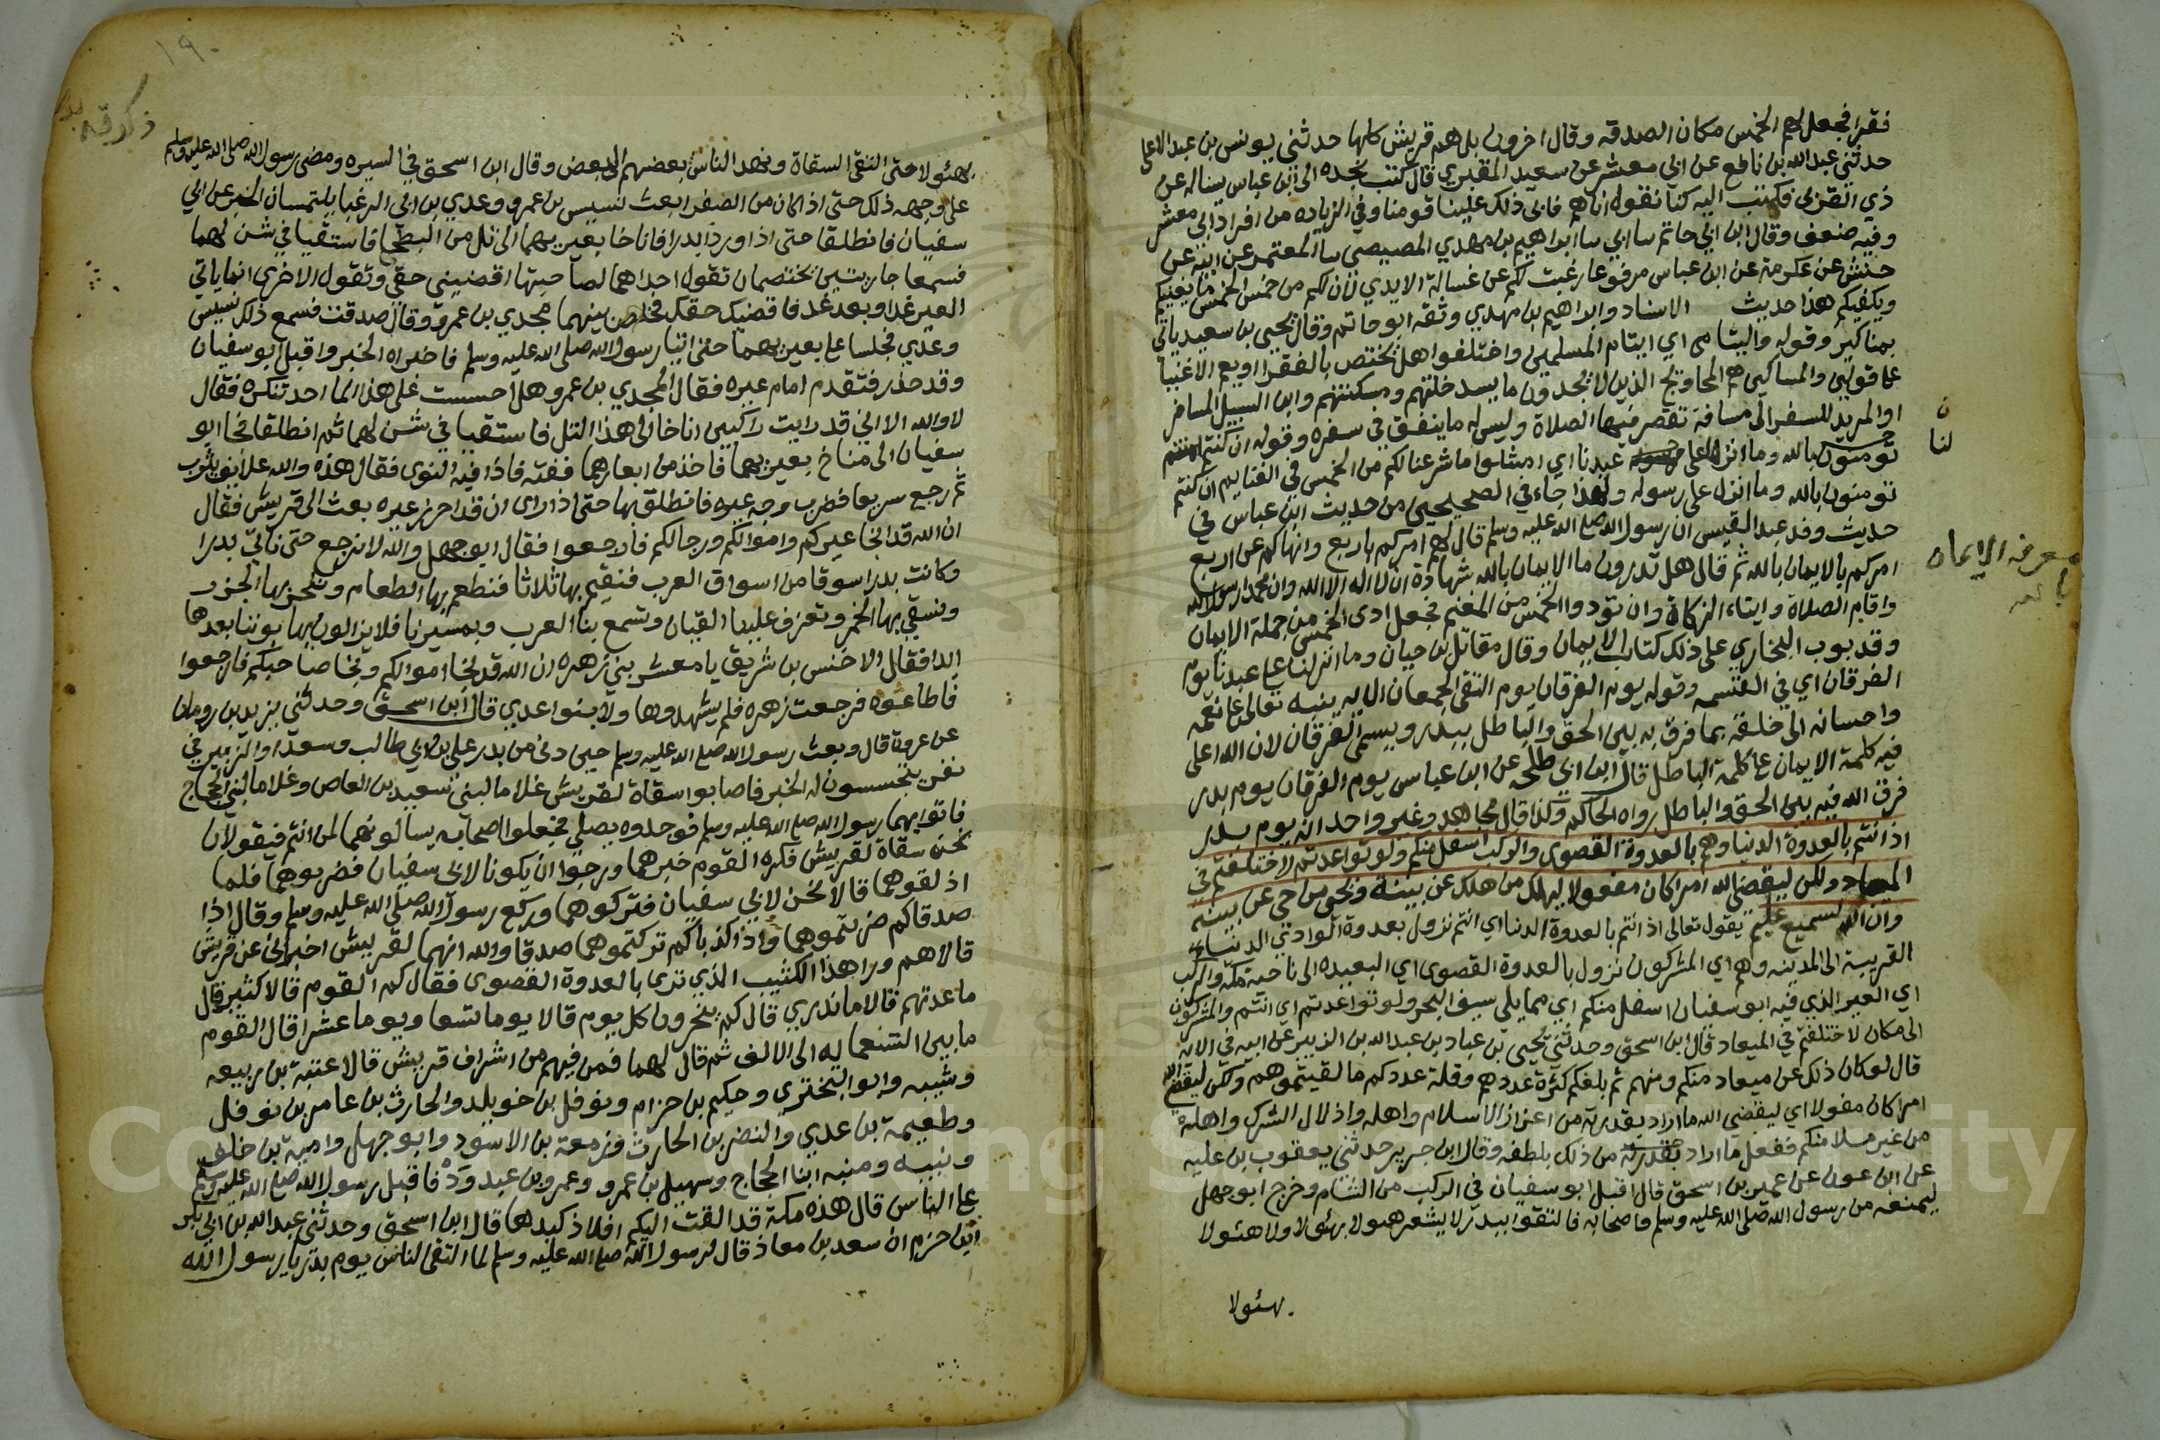 فقرا فجعل لهم الخمس مكان الصدقه وقال اخرون بل هم قريش كلها حدثني يونس بن عبد الاعلى
حدثني عبد الله بن نافع عن ابي معشر عن سعيد المقبري قال كتب نجده الى ابن عباس يساله عن
ذي القربى فكتب اليه كنا نقول انا هم فابى ذلك علينا قومنا وفي الزياده من افراد ابي معشر
وفيه ضعف وقال ابن ابي حاتم سا ابي سا ابراهيم بن مهدي المصيصي سا المعتمر عن ابيه عن
حنش عن عكرمة عن ابن عباس مرفوعا رغبت لكم عن غسالة الايدي لان لكم من خمس الخمس ما يغنيكم
ويكفيكم هذا حديث الاسناد وابراهيم بن مهدي وثقه ابو حاتم وقال يحيى بن سعيد ياتي
بمناكير وقوله واليتامى اي ايتام المسلمين واختلفوا هل يختص بالفقرا او يعم الاغنيا
على قولين والمساكين هم المحاويج الذين لا يجدون ما يسد خلتهم ومسكنتهم وابن السبيل المسافر
او المريد للسفر الى مسافة تقصر فيها الصلاة وليس له ما ينفق في سفره وقوله ان كنتم امنتم
تومنون بالله وما انزلنا على عبدنا اي امتثلوا ما شرعنا لكم من الخمس في الغنايم ان كنتم
تومنون بالله وما انزل على رسوله ولهذا جاء في الصحيحين من حديث ابن عباس في
حديث وفد عبد القيس ان رسول الله صلى الله عليه وسلم قال لهم امركم باربع وانهاكم عن اربع
امركم بالايمان بالله ثم قال هل تدرون ما الايمان بالله شهادة ان لا اله الا الله وان محمدا رسول الله
واقام الصلاة وايتاء الزكاة وان تودوا الخمس من المغنم فجعل ادى الخمس من جملة الايمان
وقد بوب البخاري على ذلك كتاب الايمان وقال مقاتل بن حيان وما انزلنا على عبدنا يوم
الفرقان اي في القسمه وقوله يوم الفرقان يوم التقى الجمعان الايه ينبه تعالى على نعمه
واحسانه الى خلقه بما فرق به بين الحق والباطل ببدر ويسمى الفرقان لان الله اعلى
فيه كلمة الايمان على كلمة الباطل قال ابن ابي طلحه عن ابن عباس يوم الفرقان يوم بدر
فرق الله فيه بين الحق والباطل رواه الحاكم وكذا قال مجاهد وغير واحد انه يوم بدر
اذ انتم بالعدوة الدنيا وهم بالعدوة القصوى والركب اسفل منكم ولو تواعدتم لاختلفتم في
الميعاد ولكن ليقضي الله امرا كان مفعولا ليهلك من هلك عن بينة ويحيى من حي عن بينه
وان الله لسميع عليم يقول تعالى اذ انتم بالعدوة الدنيا اي انتم نزول بعدوة الوادي الدنيا
القريبة الى المدينه وهم اي المشركون نزول بالعدوة القصوى اي البعيده الى ناحية مكة والركب
اي العير الذي فيه ابو سفيان اسفل منكم اي مما يلي سيف البحر ولو تواعدتم اي انتم والمشركون
الى مكان لاختلفتم في الميعاد قال ابن اسحق وحدثني يحيى بن عباد بن عبد الله بن الزبير عن ابيه في الاية
قال لو كان ذلك عن ميعاد منكم ومنهم ثم بلغكم كثرة عددهم وقلة عددكم ما لقيتموهم ولكن ليقضي الله
امرا كان مفعولا اي ليقضي الله ما اراد بقدرته من اعزاز الاسلام واهله واذلال الشرك واهله
من غير ملا منكم ففعل ما اراد بقدرته من ذلك بلطفه وقال ابن جرير حدثني يعقوب بن عليه
عن ابن عون عن عمير بن اسحق قال اقبل ابو سفيان في الركب من الشام وخرج ابو جهل
ليمنعه من رسول الله صلى الله عليه وسلم واصحابه فالتقوا ببدر لا يشعر هولا بهولا ولا هئولا
بهئولا
لنا
معرفه الايمان
١٩٠
بهئولا حتى التقى السقاة ونهد الناس بعضهم الى بعض وقال ابن اسحق في السيره ومضى رسول الله صلى الله عليه وسلم
على وجهه ذلك حتى اذا كان من الصفرا بعث بسبس بن عمرو وعدي بن ابي الرغبا يلتمسان الخبر عن ابي
سفيان فانطلقا حتى اذا وردا بدرا فاناخا بعيريهما الى تل من البطحا فاستقيا في شن لهما
فسمعا جاريتين يختصمان تقول احداهما لصاحبتها اقضيني حقي وتقول الاخرى انما ياتي
العير غدا او بعد غد فاقضيك حقك فخلص بينهما مجدي بن عمرو وقال صدقت فسمع ذلك بسبس
وعدي فجلسا على بعيريهما حتى اتيا رسول الله صلى الله عليه وسلم فاخبراه الخبر واقبل ابو سفيان
وقد حذر فتقدم امام عيره فقال لمجدي بن عمرو هل احسست على هذا الما احد تنكره فقال
لا والله الا اني قد رايت راكبين اناخا الى هذا التل فاستقيا في شن لهما ثم انطلقا فجا ابو
سفيان الى مناخ بعيريهما فاخذ من ابعارهما ففته فاذا فيه النوى فقال هذه والله علايف يثرب
ثم رجع سريعا فضرب وجه عيره فانطلق بها حتى اذا راى ان قد احرز عيره بعث الى قريش فقال
ان الله قد انجا عيركم واموالكم ورجالكم فارجعوا فقال ابو جهل والله لا نرجع حتى ناتي بدرا
وكانت بدرا سوقا من اسواق العرب فنقيم بها ثلاثا فنطعم بها الطعام وننحر بها الجزر
ونسقي بها الخمر وتعزف علينا القيان وتسمع بنا العرب وبمسيرنا فلا يزالون يهابوننا بعدها
ابدا فقال الاخنس بن شريق يا معشر بني زهره ان الله قد نجا اموالكم ونجا صاحبكم فارجعوا
فاطاعوه فرجعت زهره فلم يشهدوها ولا بنوا عدي قال ابن اسحق وحدثني يزيد بن رومان
عن عروة قال وبعث رسول الله صلى الله عليه وسلم حين دنى من بدر علي بن ابي طالب وسعدا والزبير في
نفر يتجسسون له الخبر فاصابوا سقاة لقريش غلاما لبني سعيد بن العاص وغلاما لبني الحجاج
فاتوا بهما رسول الله صلى الله عليه وسلم فوجدوه يصلي فجعلوا اصحابه يسالونهما لمن انتم فيقولان
نحن سقاة لقريش فكره القوم خبرهما ورجوا ان يكونا لابي سفيان فضربوهما فلما
اذلقوهما قالا نحن لابي سفيان فتركوهما وركع رسول الله صلى الله عليه وسلم وقال اذا
صدقاكم ضربتموهما واذا كذباكم تركتموهما صدقا والله انهما لقريش اخبراني عن قريش
قالا هم ورا هذا الكثيب الذي ترى بالعدوة القصوى فقال كم القوم قالا كثير قال
ما عدتهم قالا ما ندري قال كم ينحرون كل يوم قالا يوما تسعا ويوما عشرا قال القوم
ما بين التسعمايه الى الالف ثم قال لهما فمن فيهم من اشراف قريش قالا عتبة بن ربيعه
وشيبه وابو البختري وحكيم بن حزام ونوفل بن خويلد والحارث بن عامر بن نوفل
وطعيمة بن عدي والنضر بن الحارث وزمعة بن الاسود وابو جهل وامية بن خلف
ونبيه ومنبه ابنا الحجاج وسهيل بن عمرو وعمرو بن عبد ود فاقبل رسول الله صلى الله عليه وسلم
على الناس قال هذه مكة قد القت اليكم افلاذ كبدها قال ابن اسحق وحدثني عبد الله بن ابي بكر
ابن حزم ان سعد بن معاذ قال لرسول الله صلى الله عليه وسلم لما التقى الناس يوم بدر يا رسول الله